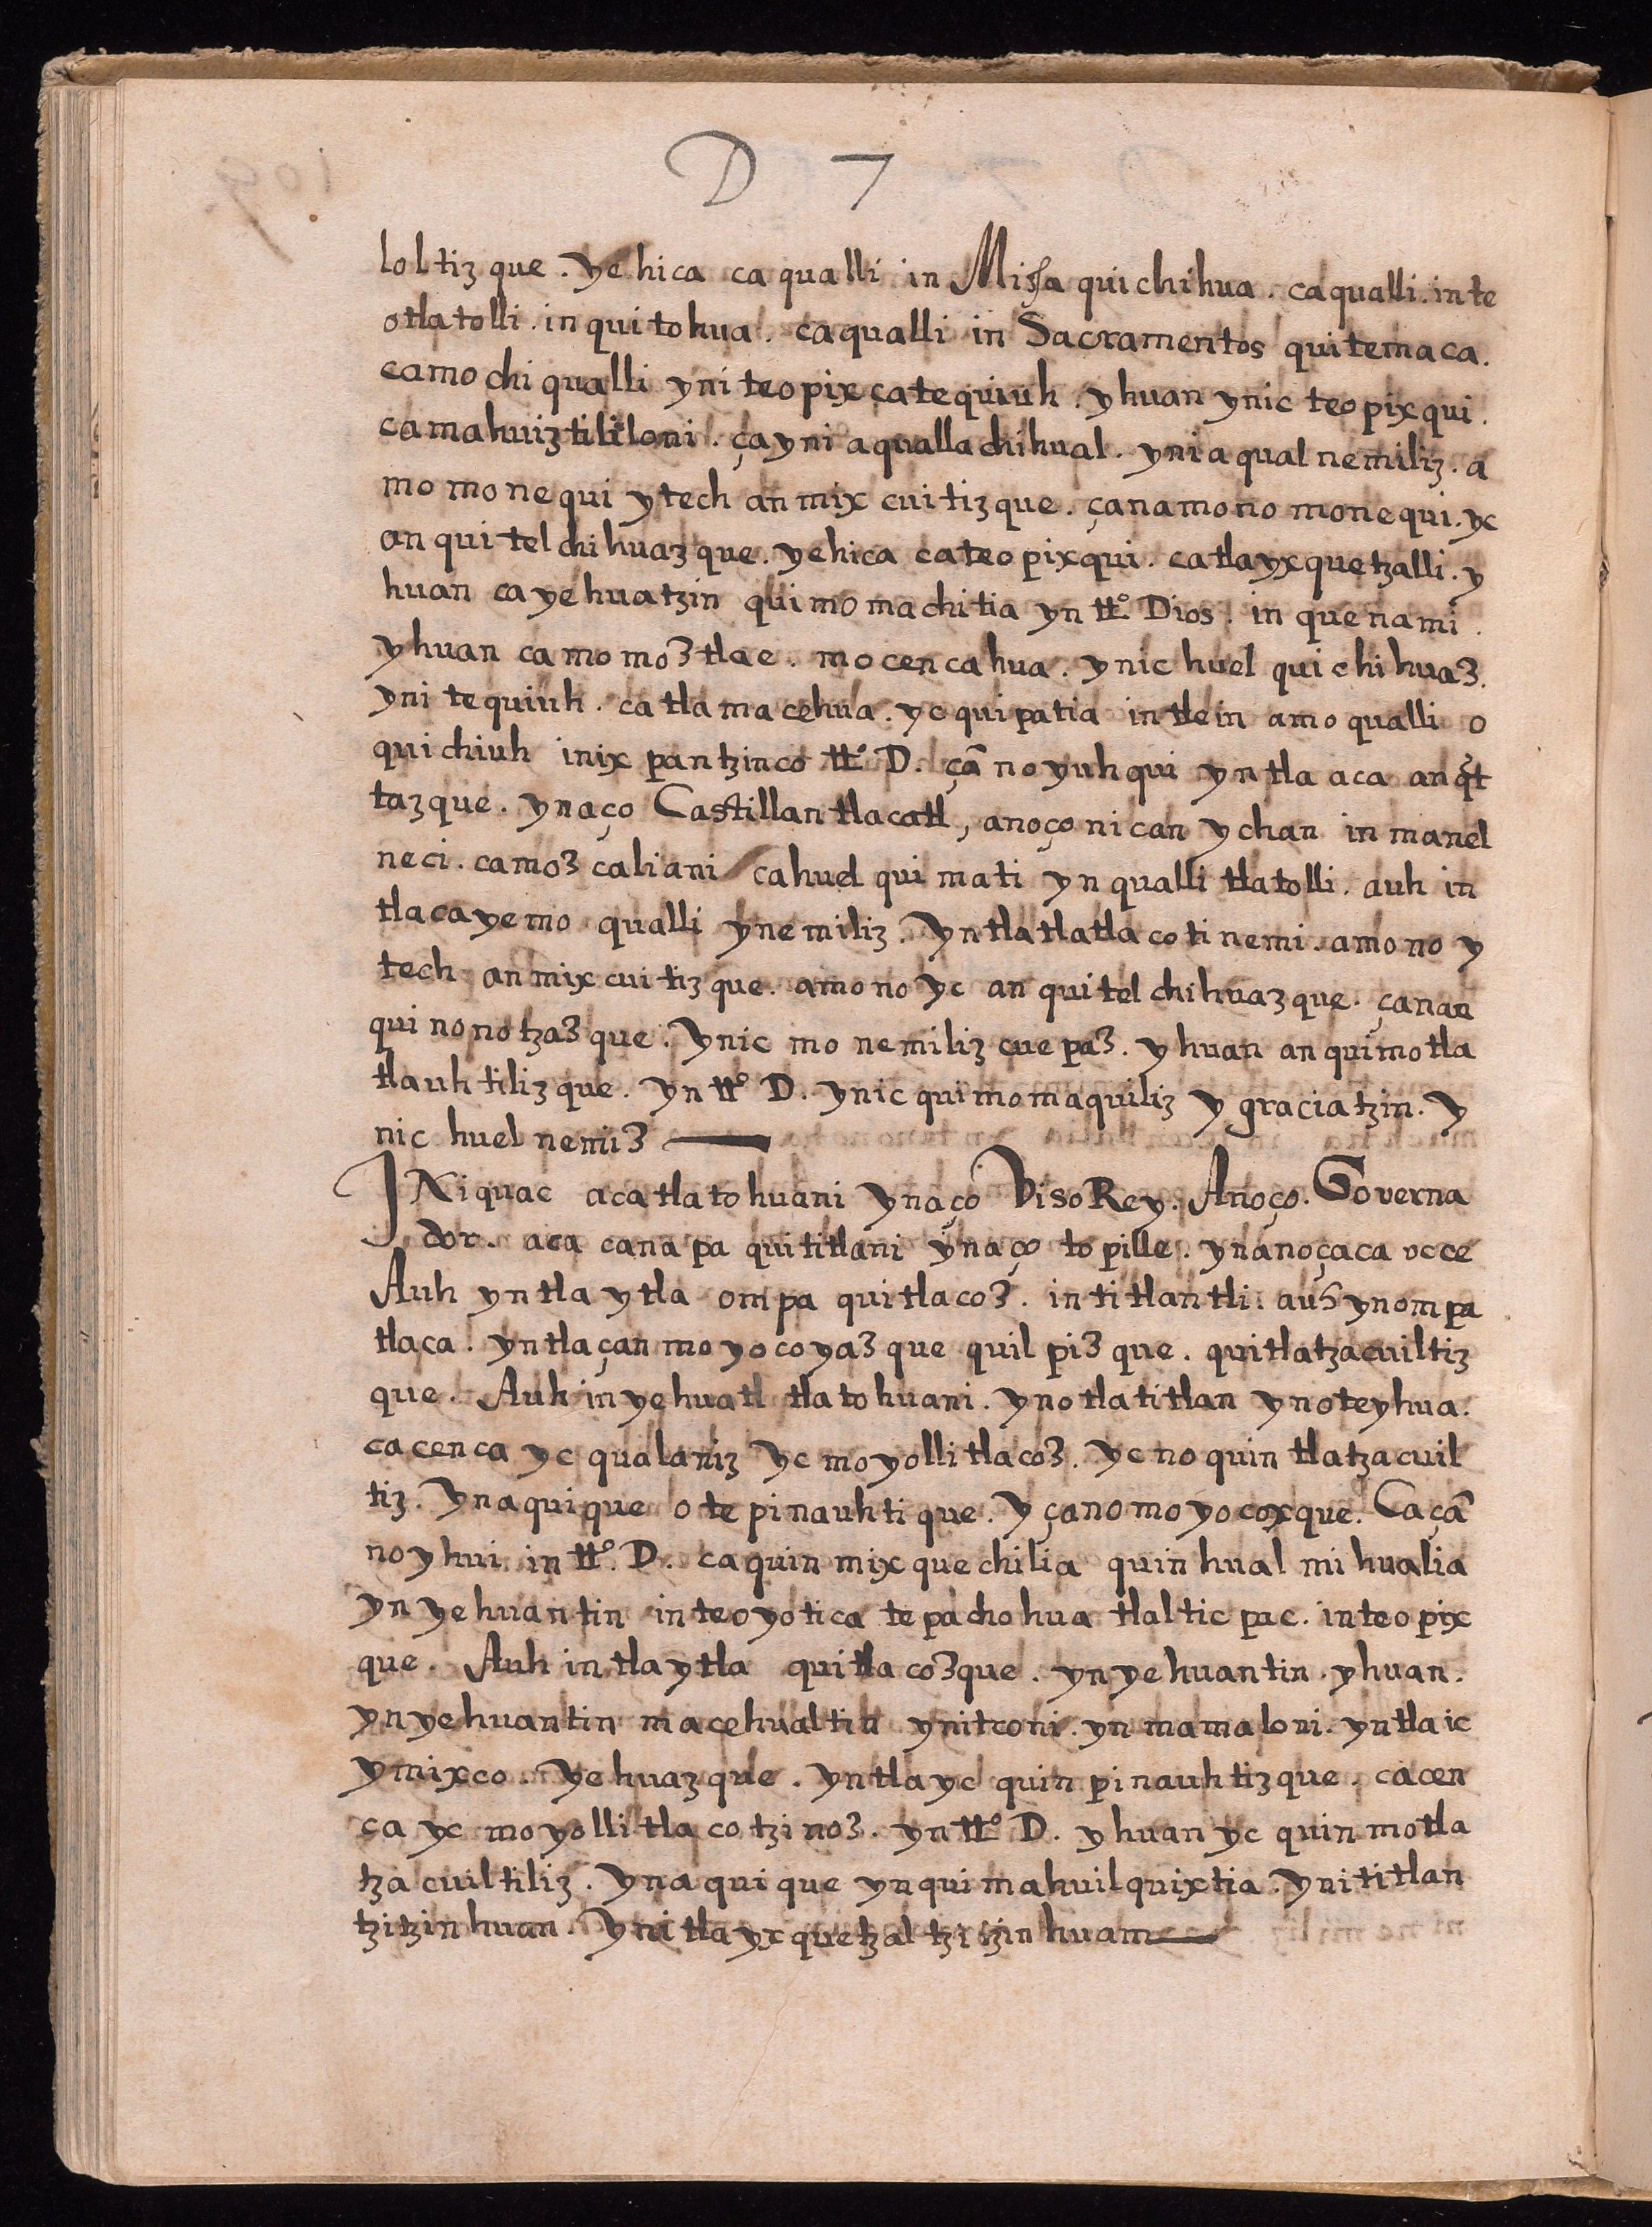 D 7
loltiz que. yehica ca qualli in Missa quichihua. caqualli. in te
otlatolli. in quitohua. caqualli in Sacramentos quitemaca.
camochi qualli yni teopixcatequiuh. yhuan ynic teopixqui.
camahuiztililoni. ça yni aquallachihual. yni aqualnemiliz. a
mo monequi ytech anmixcuitizque. çan amono monequi. yc
anquitelchihuazque. yehica cateopixqui. catlayxquetzalli. y
huan cayehuatzin quimomachitia yn tto Dios. in quenami.
yhuan camomoztlae. mocencahua. ynic huel quichihuaz.
yni tequiuh. catlamacehua. yc quipatia intlein amo qualli o
quichiuh inixpantzinco tto D. çã noyuhqui yntla aca anqt
tazque. ynaço Castillan tlacatl, anoço nican ychan in manel
neci. camozcaliani cahuel quimati yn qualli tlatolli. auh in
tlacayemo qualli ynemiliz. Yntlatlatlacotinemi. amo no y
tech anmixcuitizque. amo no yc anquitelchihuazque. çanan
quinonotzazque. Ynic monemilizcuepaz. yhuan anquimotla
tlauhtilizque. yn tto D. ynic quimomaquiliz ygraciatzin. y
nic huel nemiz
INiquac aca tlatohuani ynaço VisoRey. Anoço. Governa
dor. aca canapa quititlani ynaço topille. ynanoçaca occe
Auh yntla ytla ompa quitlacoz. in titlantli. auh ynompa
tlaca. yntlaçan moyocoyazque quilpizque. quitlatzacuiltiz
que. Auh in yehuatl tlatohuani. ynotlatitlan ynoteyhua.
cacenca yc qualaniz yc moyollitlacoz. yc no quintlatzacuil
tiz. Ynaquique otepinauhtique. yçanomoyocoxque. Caçã
noyhui in tto. D. caquinmixquechilia quinhualmihualia
yn yehuantin in teoyotica tepachohua tlalticpac. in teopix
que. Auh intla ytla quitlacozque. ynyehuantin. yhuan.
ynyehuantin macehualtin ynitconi. yn mamaloni. yntlaic
ymixco. Yehuazque. yntlayc quinpinauhtizque. cacen
ca yc moyollitlacotzinoz. yn tto D. yhuan yc quinmotla
tzacuiltiliz. Ynaquique ynquimahuilquixtia. ynititlan
tzitzinhuan. Ynitlayxquetzaltzitzinhuan